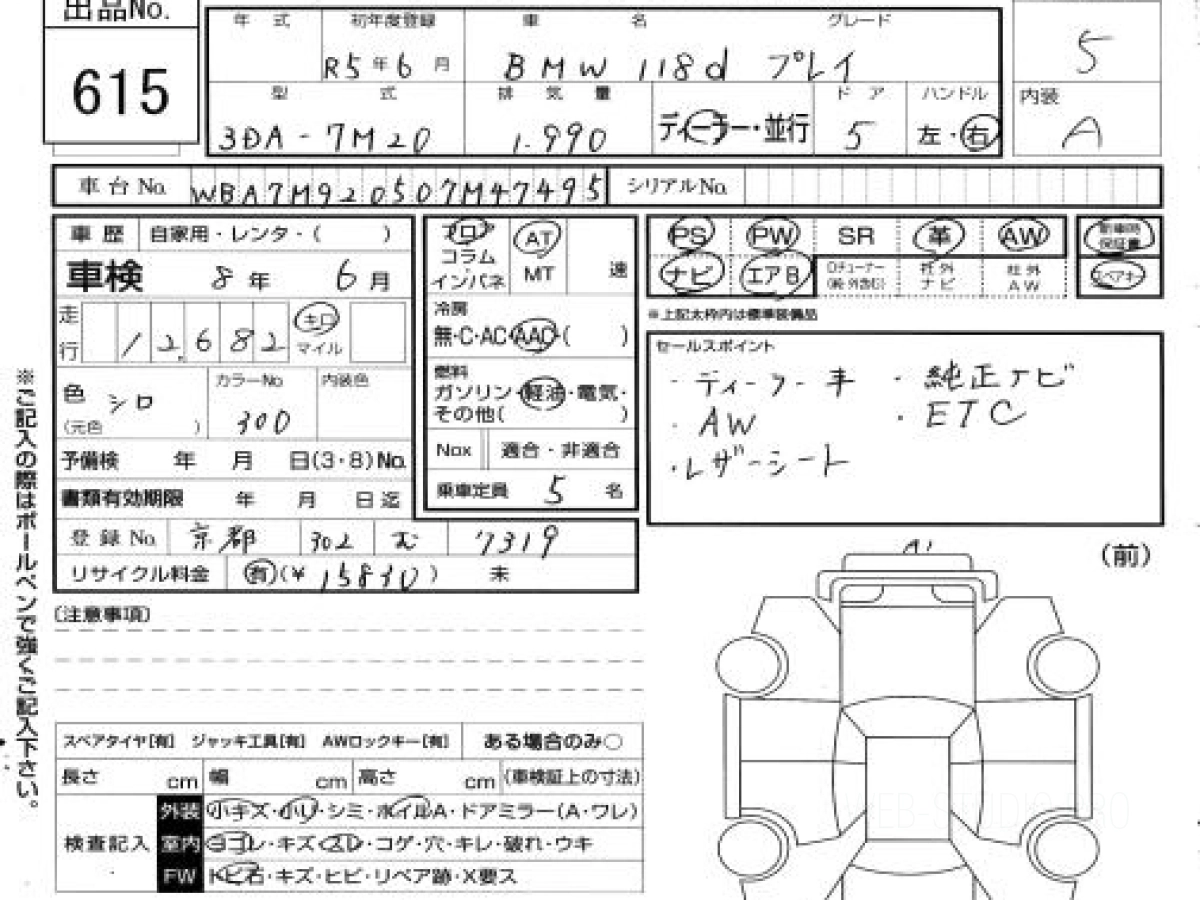 出品No.
615
年式 初年度登録 車名 グレード
R5年6月 BMW 118d プレイ
5
型式 排気量 ディーラー・並行 ドア ハンドル 内装
3DA-7M20 1.990 5 左・右 A
車台No. WBA7M920507M47495 シリアルNo.
車歴 自家用・レンタ・( )
車検 8年 6月
走行 12,682 キロ マイル
色 シロ (元色 ) カラーNo 300 内装色
予備検 年 月 日(3・8)No.
書類有効期限 年 月 日迄
登録No. 京都 302 む 7319
リサイクル料金 有(¥15830) 未
フロア コラム インパネ AT MT 速
冷房
無・C・AC・AAC・( )
燃料
ガソリン・軽油・電気・
その他( )
Nox 適合・非適合
乗車定員 5 名
PS PW SR 革 AW 新車時保証書
ナビ エアB 社外ナビ 社外AW スペアキー
※上記太枠内は標準装備品
セールスポイント
・ディーラー車 ・純正ナビ
・AW ・ETC
・レザーシート
(注意事項)
A1
(前)
※ご記入の際はボールペンで強くご記入下さい。
スペアタイヤ[有] ジャッキ工具[有] AWロックキー[有] ある場合のみ○
長さ cm 幅 cm 高さ cm (車検証上の寸法)
検査記入
外装 小キズ・小U・シミ・ホイルA・ドアミラー(A・ワレ)
室内 ヨゴレ・キズ・スレ・コゲ・穴・キレ・破れ・ウキ
FW トビ石・キズ・ヒビ・リペア跡・X要ス
WEB STUDIO PRO